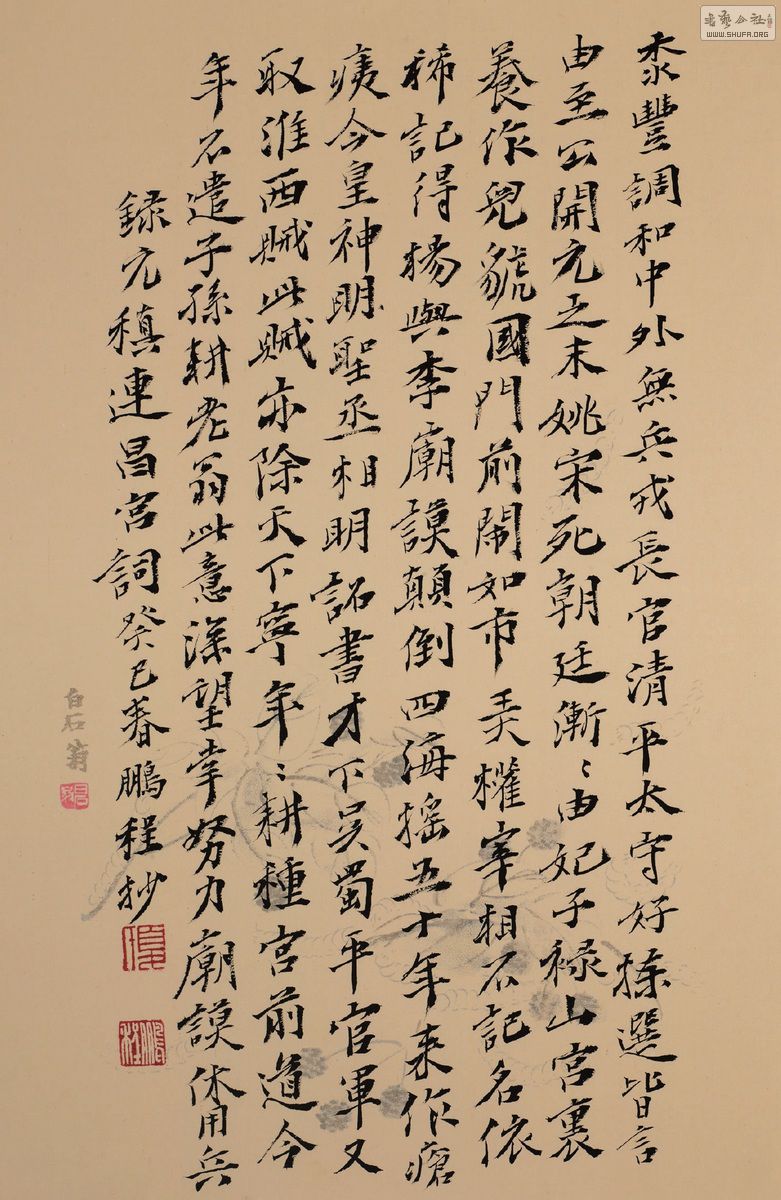 泰豐調和中外無兵戎長官清平太守好揀選皆言
由至公開元之末姚宋死朝廷漸〻由妃子祿山宮裏
養作兒虢國門前鬧如市弄權宰相不記名依
稀記得楊與李廟謨顛倒四海搖五十年來作瘡
痍今皇神明聖丞相明詔書才下吳蜀平官軍又
取淮西賊此賊亦除天下寧年〻耕種宮前道今
年不遣子孫耕老翁此意深望幸努力廟謨休用兵
録元稹連昌宮詞癸巳春鵬程抄
鵬程
白石翁
WWW.SHUFA.ORG